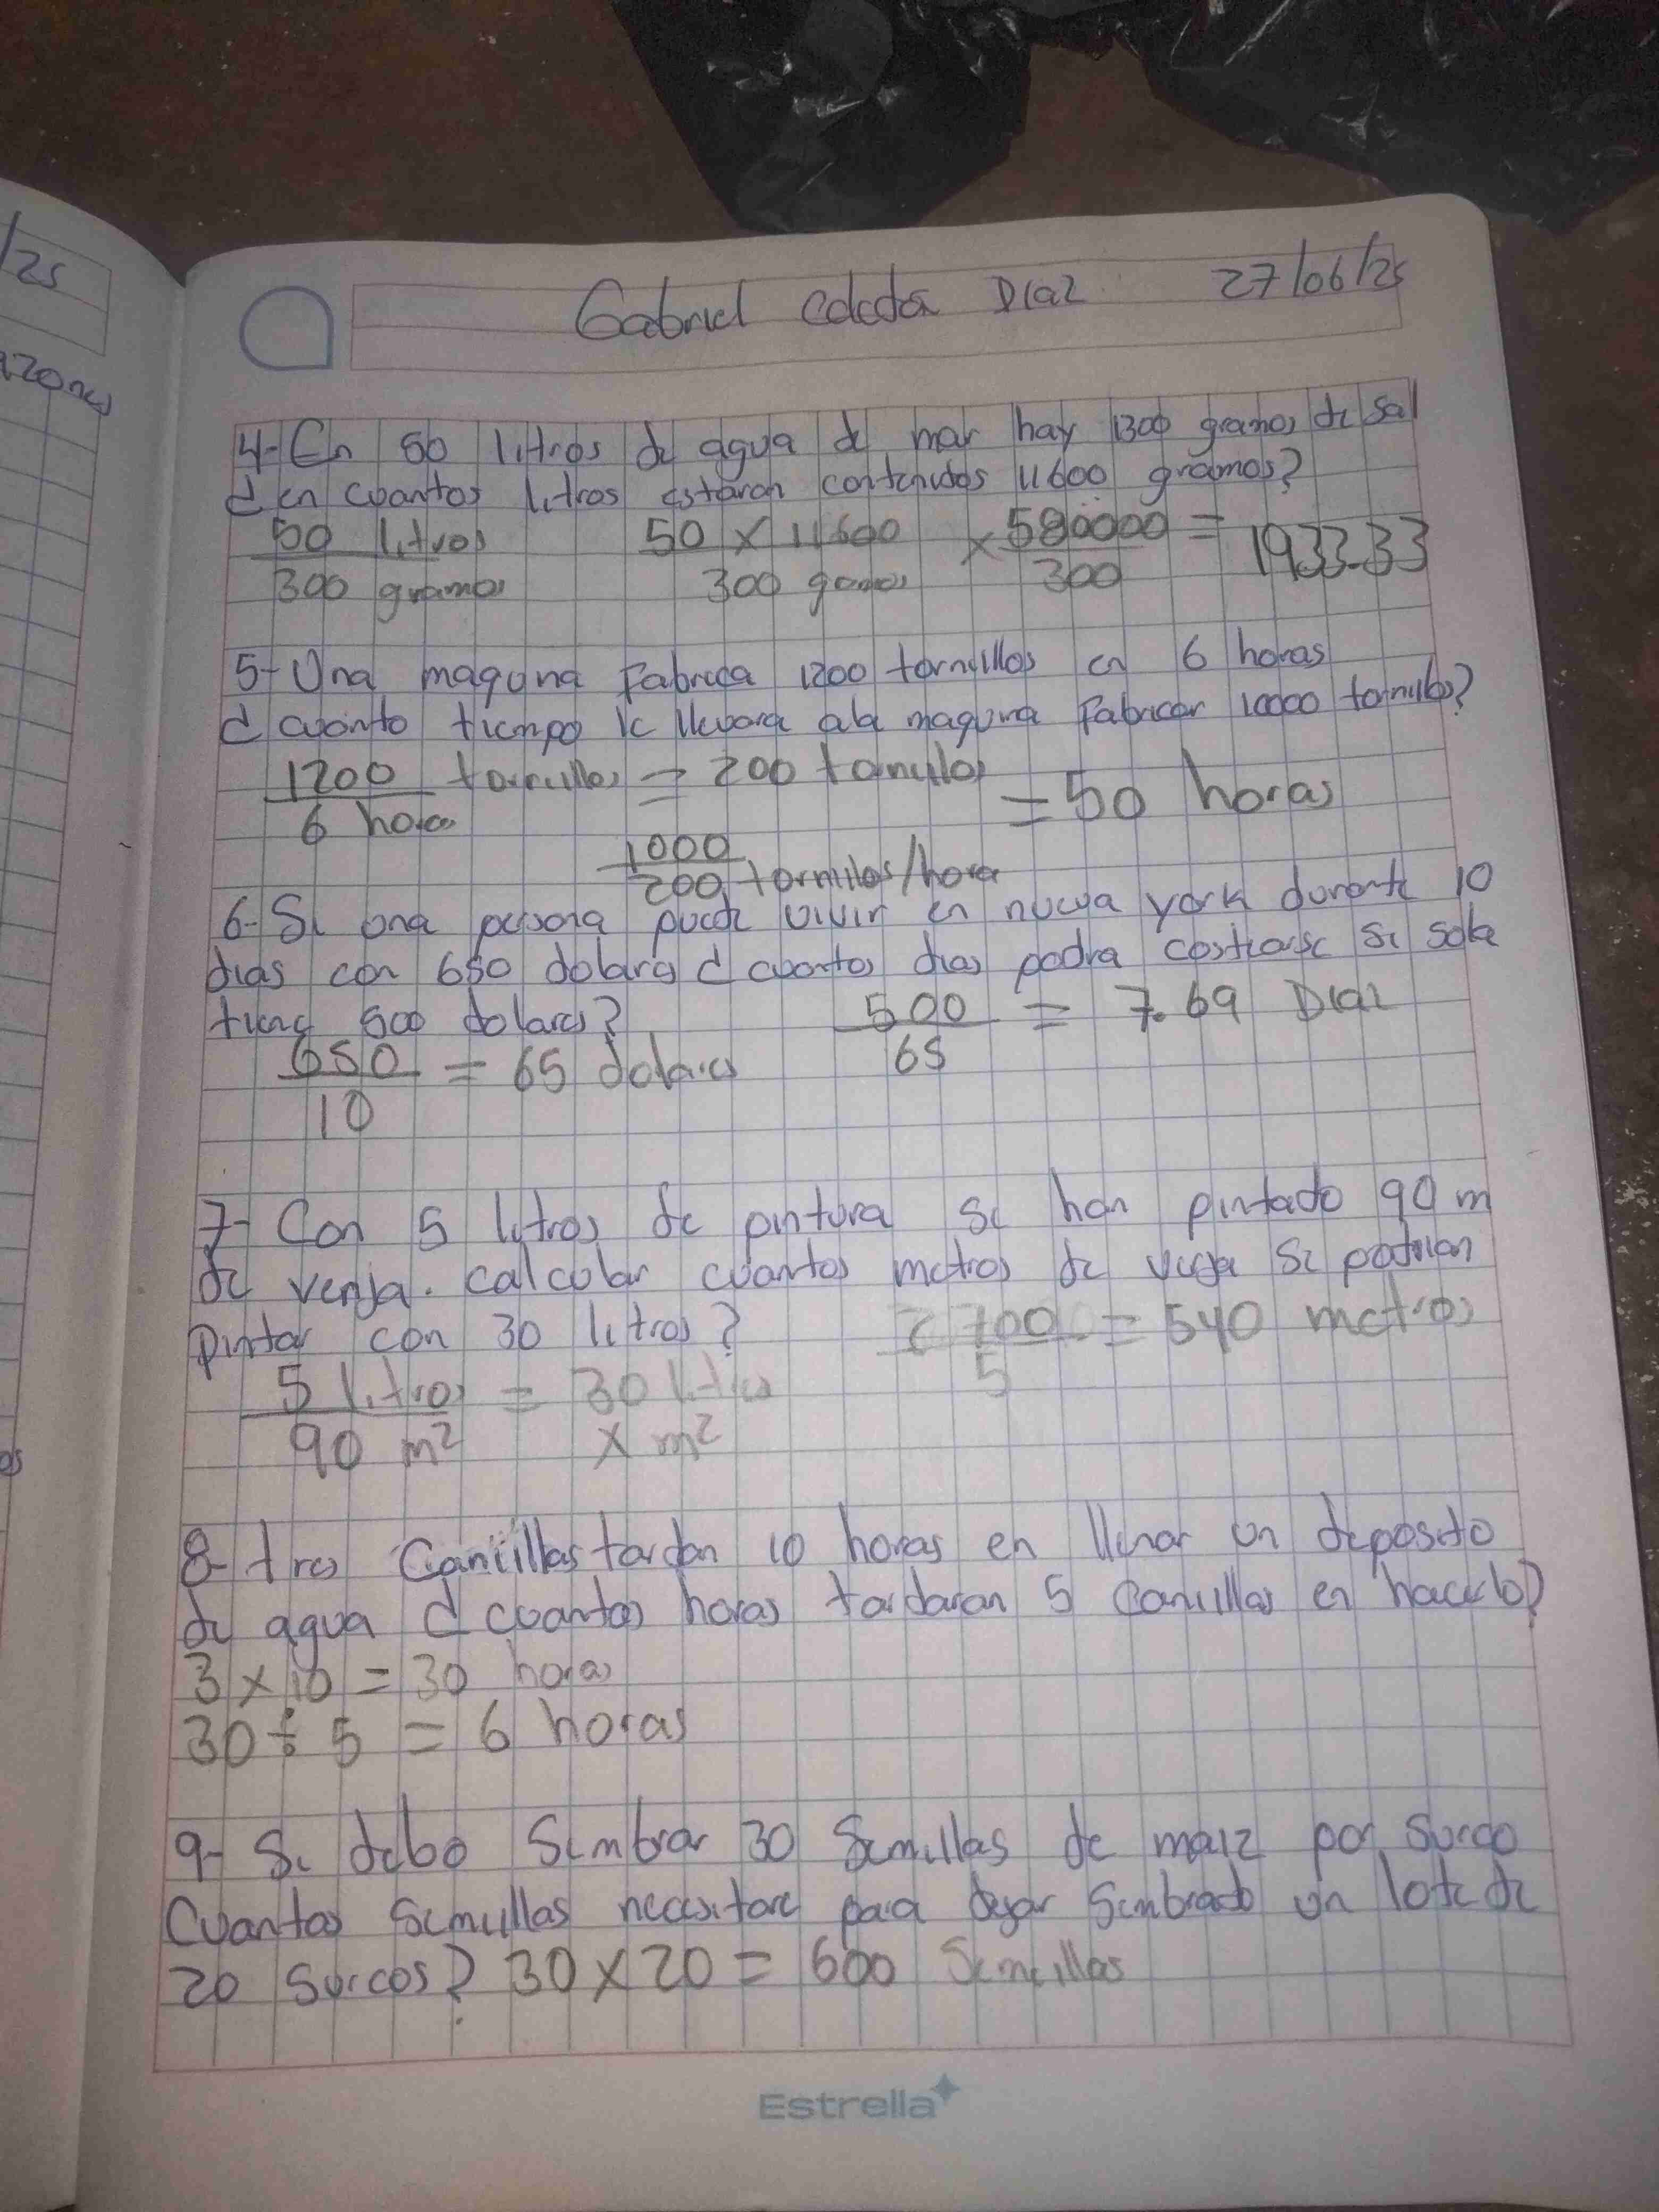 /25
Gabriel Diaz 27/06/25
azones
4- En 50 litros de agua de mar hay 1300 gramos de sal
¿ en cuantos litros estaran contenidos 11600 gramos?
50 litros 50 x 11600 x 580000 = 1933.33
300 gramos 300 gramos 300
5- Una maquina Fabrica 1200 tornillos en 6 horas
¿ cuanto tiempo le llevara ala maquina Fabricar 10000 tornillos?
1200 tornillos = 200 tornillos = 50 horas
6 horas
1000
200 tornillos/hora
6- Si una persona puede vivir en nueva york durante 10
dias con 650 dolares ¿ cuantos dias podra costearse si solo
tiene 500 dolares? 500 = 7.69 Diaz
650 = 65 dolares 65
10
7- Con 5 litros de pintura se han pintado 90 m
de verja. calcular cuantos metros de verja se podrian
pintar con 30 litros? 2700 = 540 metros
5 litros = 30 litros 5
90 m² x m²
8- tres Canillas tardan 10 horas en llenar un deposito
de agua ¿ cuantas horas tardaran 5 Canillas en hacerlo?
3 x 10 = 30 horas
30 ÷ 5 = 6 horas
9- Si debo Sembrar 30 Semillas de maiz por Surco
Cuantas Semillas necesitare para dejar Sembrado un lote de
20 Surcos? 30 x 20 = 600 Semillas
Estrella